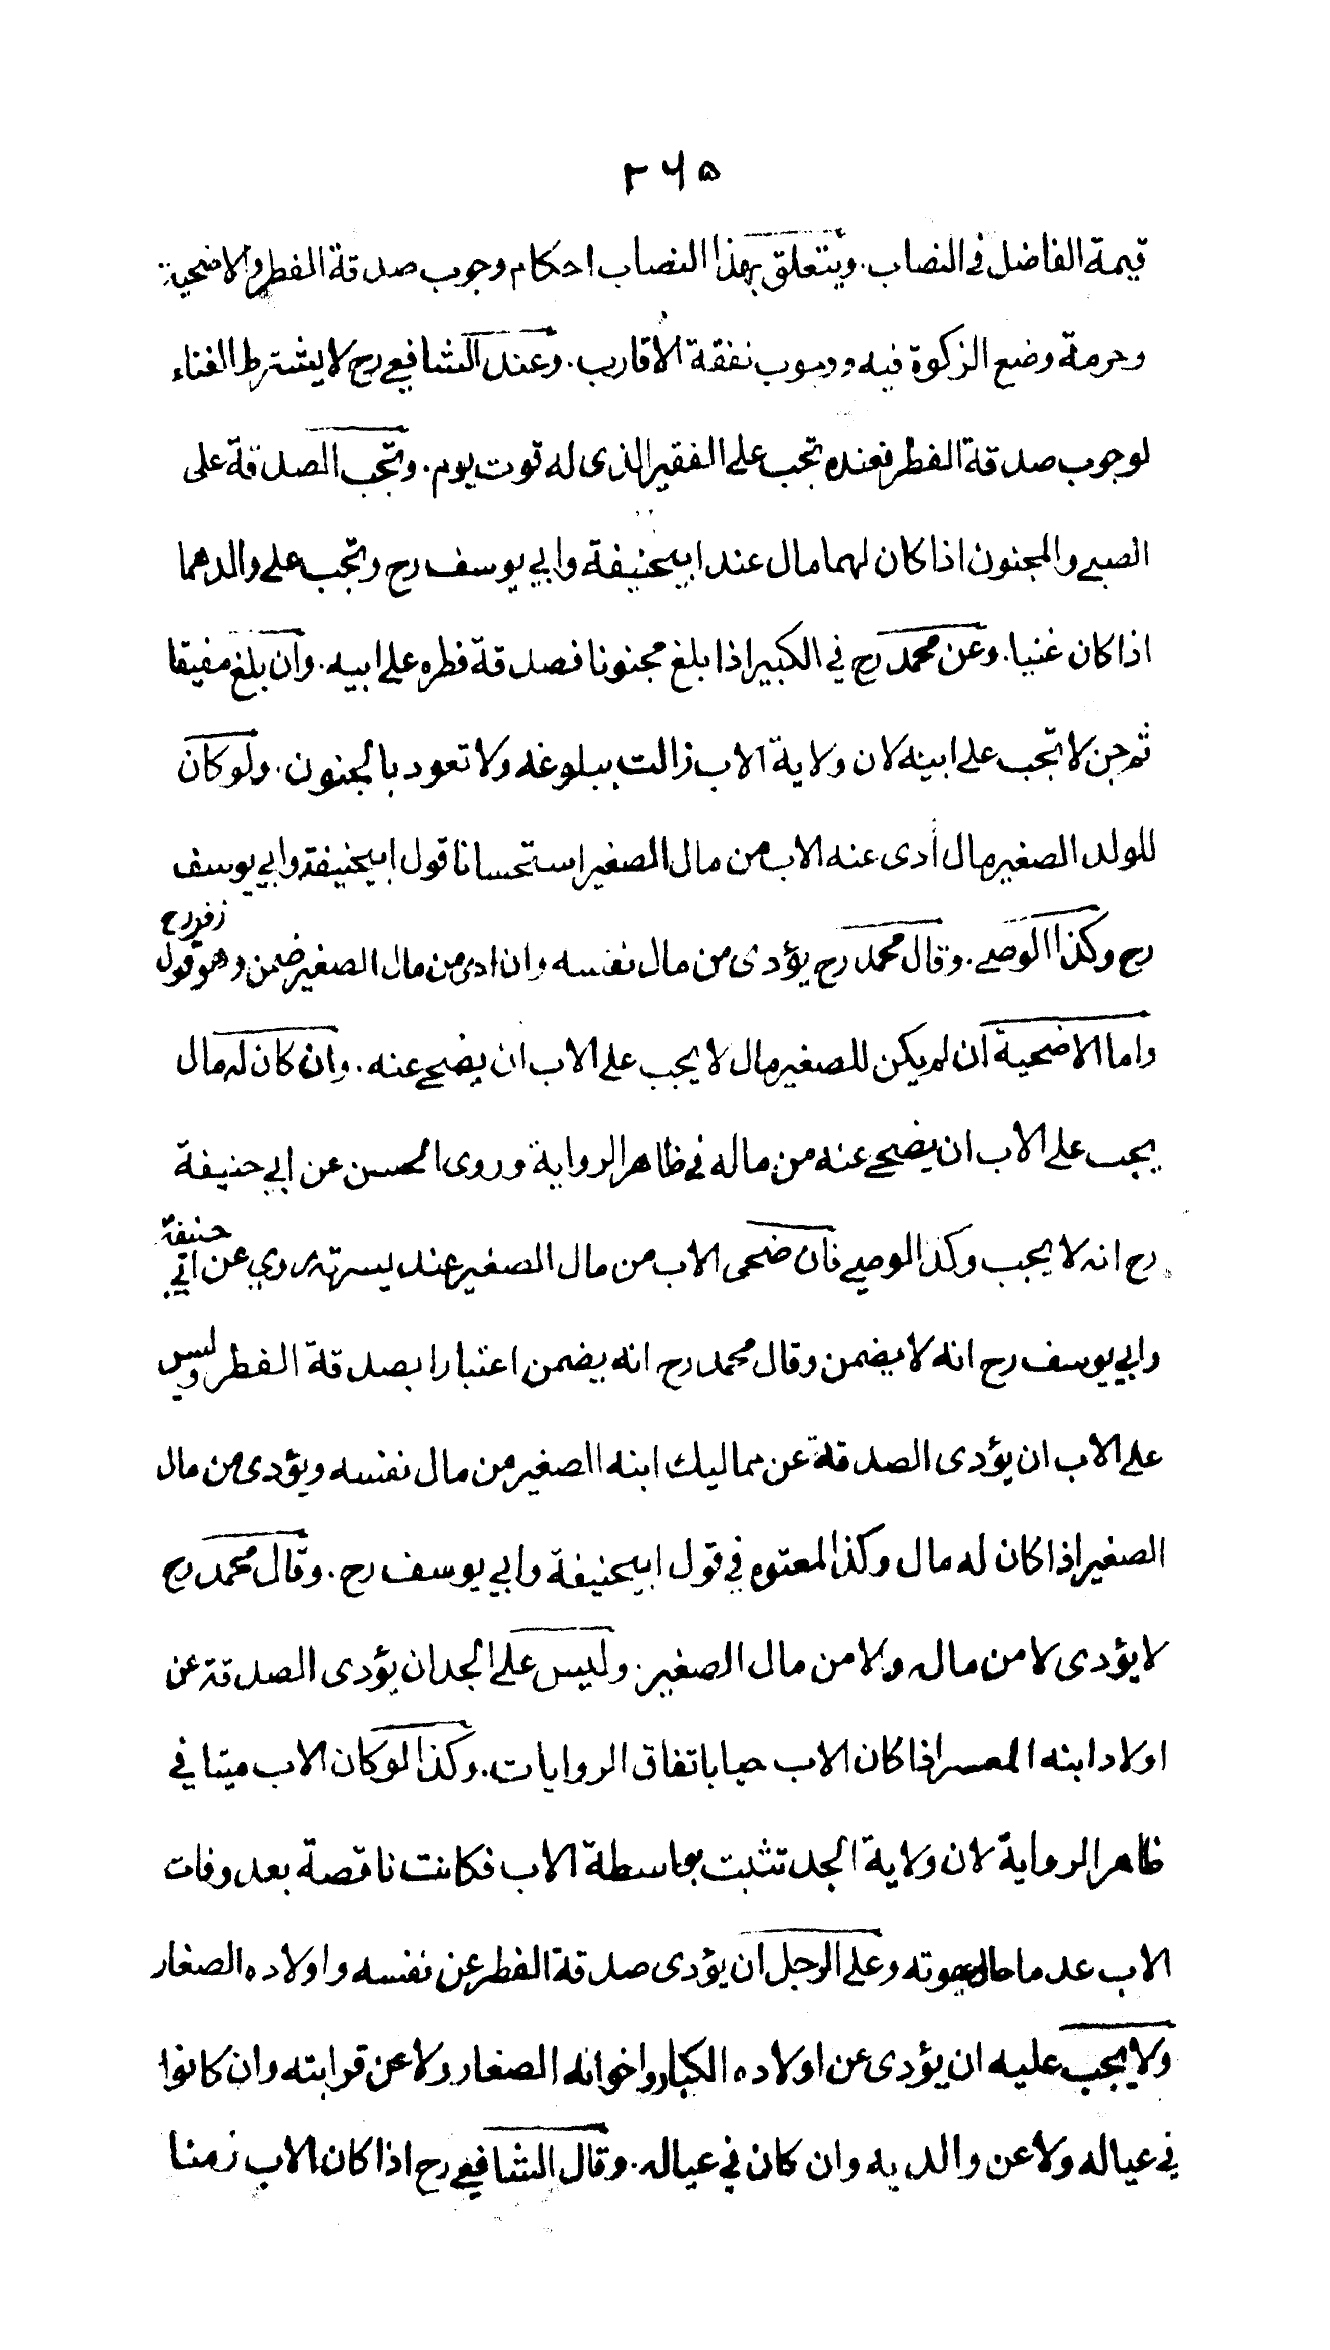 ٢٦٥
قيمة الفاضل فى النصاب. ويتعلق بهذا النصاب احكام وجوب صدقة الفطر والاضحية
وحرمة وضع الزكوة فيه ووجوب نفقة الاقارب. وعند الشافعي رح لا يشترط الغناء
لوجوب صدقة الفطر فعنده تجب على الفقير الذى له قوت يوم. وتجب الصدقة على
الصبي والمجنون اذا كان لهما مال عند ابيحنيفة وابي يوسف رح وتجب على والدهما
اذا كان غنيا. وعن محمد رح في الكبير اذا بلغ مجنونا فصدقة فطره على ابيه. وان بلغ مفيقا
ثم جن لا تجب على ابيه لان ولاية الاب زالت ببلوغه ولا تعود بالجنون. ولو كان
للولد الصغير مال أدى عنه الاب من مال الصغير استحسانا قول ابيحنيفة وابي يوسف
رح وكذا الوصي. وقال محمد رح يؤدى من مال نفسه وان ادى من مال الصغير ضمن وهو قول زفر رح
واما الاضحية ان لم يكن للصغير مال لا يجب على الاب ان يضحي عنه. وان كان له مال
يجب على الاب ان يضحي عنه من ماله في ظاهر الرواية وروى الحسن عن ابي حنيفة
رح انه لا يجب وكذا الوصي فان ضحى الاب من مال الصغير عند يسرته روي عن ابي حنيفة
وابي يوسف رح انه لا يضمن وقال محمد رح انه يضمن اعتبارا بصدقة الفطر وليس
على الاب ان يؤدى الصدقة عن مماليك ابنه الصغير من مال نفسه ويؤدى من مال
الصغير اذا كان له مال وكذا المعتوه في قول ابيحنيفة وابي يوسف رح. وقال محمد رح
لا يؤدى لا من ماله ولا من مال الصغير. وليس على الجد ان يؤدى الصدقة عن
اولاد ابنه المعسر اذا كان الاب حيا باتفاق الروايات. وكذا لو كان الاب ميتا في
ظاهر الرواية لان ولاية الجد تثبت بواسطة الاب فكانت ناقصة بعد وفات
الاب عدما حال موته وعلى الرجل ان يؤدى صدقة الفطر عن نفسه واولاده الصغار
ولا يجب عليه ان يؤدى عن اولاده الكبار واخوانه الصغار ولا عن قرابته وان كانوا
في عياله ولا عن والديه وان كان في عياله. وقال الشافعي رح اذا كان الاب زمنا